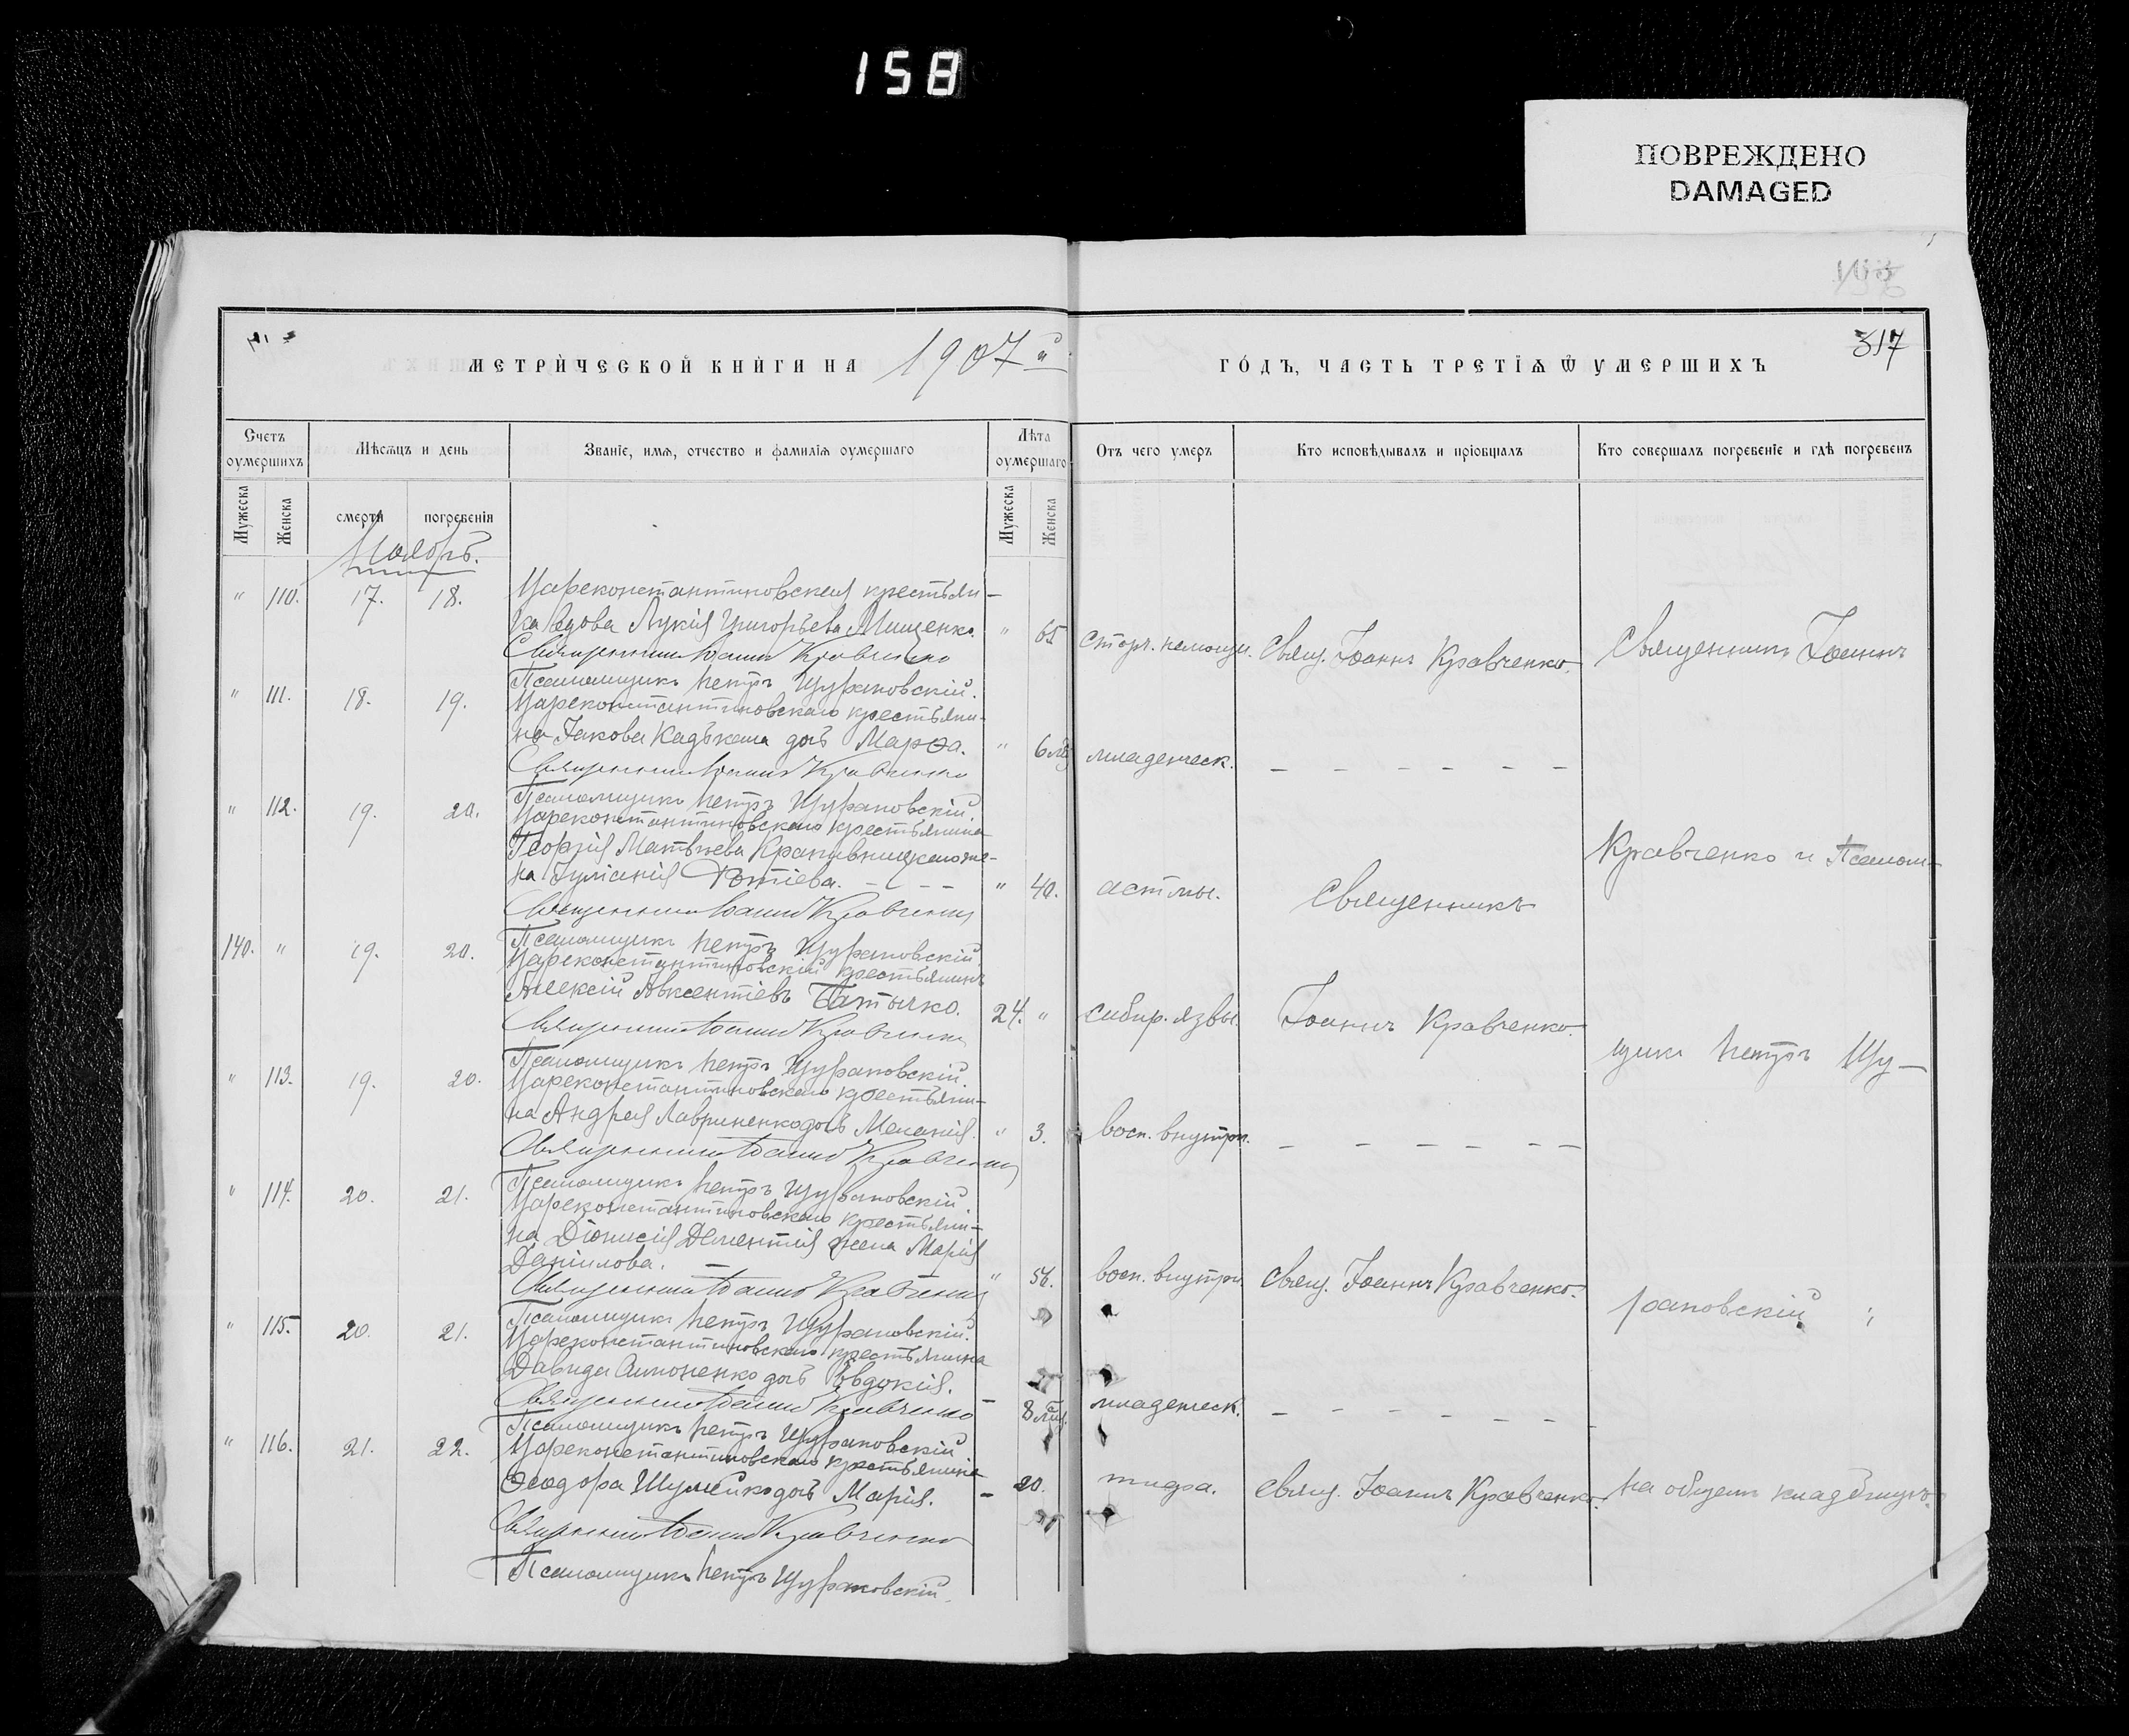 158
ПОВРЕЖДЕНО
DAMAGED
317
МЕТРИЧЕСКОЙ КНИГИ НА 1907й
ГОДЪ, ЧАСТЬ ТРЕТІѦ Ѿ УМЕРШИХЪ
Счетъ оумершихъ
Мѣсѧцъ и день
Званіе, имѧ, отчество и фамиліѧ оумершаго
Лѣта оумершаго
Отъ чего умеръ
Кто исповѣдывалъ и пріобщалъ
Кто совершалъ погребеніе и гдѣ погребенъ
Мужеска
Женска
смерти
погребенія
Мужеска
Женска
Ноябрь.
" 110. 17. 18. Цареконстантиновская крестьян-
ка вдова Лукія Григорьева Мищенко. " 65 старч. немощи. Свящ. Іоаннъ Кравченко. Священникъ Іоаннъ
Священникъ Іоаннъ Кравченко
Псаломщикъ Петръ Щурановскій.
" 111. 18. 19. Цареконстантиновскаго крестьяни-
на Іакова дочь Марѳа. " 6 мѣс младенческ. — — — — — —
Священникъ Іоаннъ Кравченко
Псаломщикъ Петръ Щурановскій.
" 112. 19. 20. Цареконстантиновскаго крестьянина
Георгія Матвѣева Крапивницкаго же-
на Іуліанія Фотіева. — — — " 40. астмы. Священникъ Кравченко и Псалом-
Священникъ Іоаннъ Кравченко
Псаломщикъ Петръ Щурановскій.
140. " 19. 20. Цареконстантиновскій крестьянинъ
Алексій Авксентіевъ Батычко. 24. " сибир. язвы. Іоаннъ Кравченко.
Священникъ Іоаннъ Кравченко
Псаломщикъ Петръ Щурановскій.
щикъ Петръ Щу-
" 113. 19. 20. Цареконстантиновскаго крестьяни-
на Андрея Лавриненко дочь Меланія. " 3. восп. внутрн. — — — — — —
Священникъ Іоаннъ Кравченко
Псаломщикъ Петръ Щурановскій.
" 114. 20. 21. Цареконстантиновскаго крестьяни-
на Діонисія Дементія жена Марія
Даніилова. — " 56. восп. внутрн. Свящ. Іоаннъ Кравченко.
Священникъ Іоаннъ Кравченко
Псаломщикъ Петръ Щурановскій.
рановскій;
" 115. 20. 21. Цареконстантиновскаго крестьянина
Давида дочь Евдокія.
Священникъ Іоаннъ Кравченко — 8 мѣс. младенческ. — — — — — — —
Псаломщикъ Петръ Щурановскій
" 116. 21. 22. Цареконстантиновскаго крестьянина
Ѳеодора Шумейко дочь Марія. — 20. тифа. Свящ. Іоаннъ Кравченко. на общемъ кладбищѣ.
Священникъ Іоаннъ Кравченко
Псаломщикъ Петръ Щурановскій.